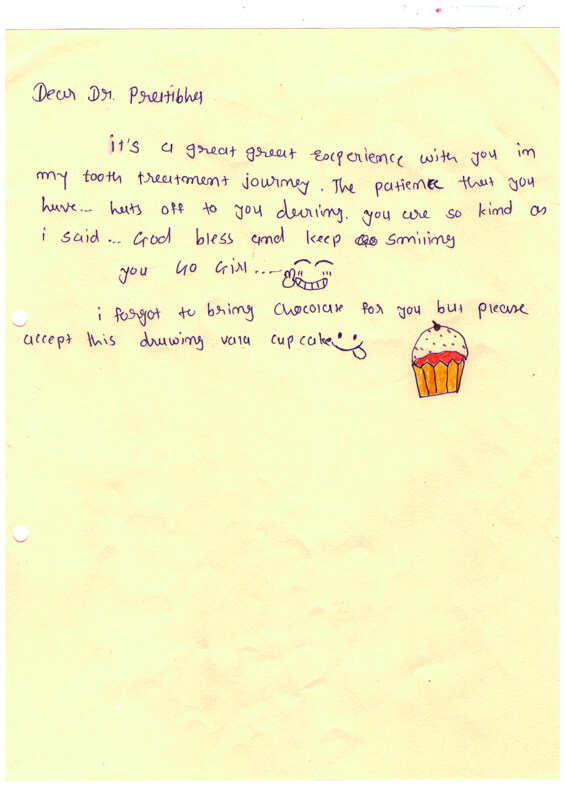 Dear Dr. Pratibha
it's a great great experience with you in
my tooth treatment journey. The patience that you
have... hats off to you darling. you are so kind as
i said... God bless and keep smiling
you Go Girl....
i forgot to bring chocolate for you but please
accept this drawing vala cupcake